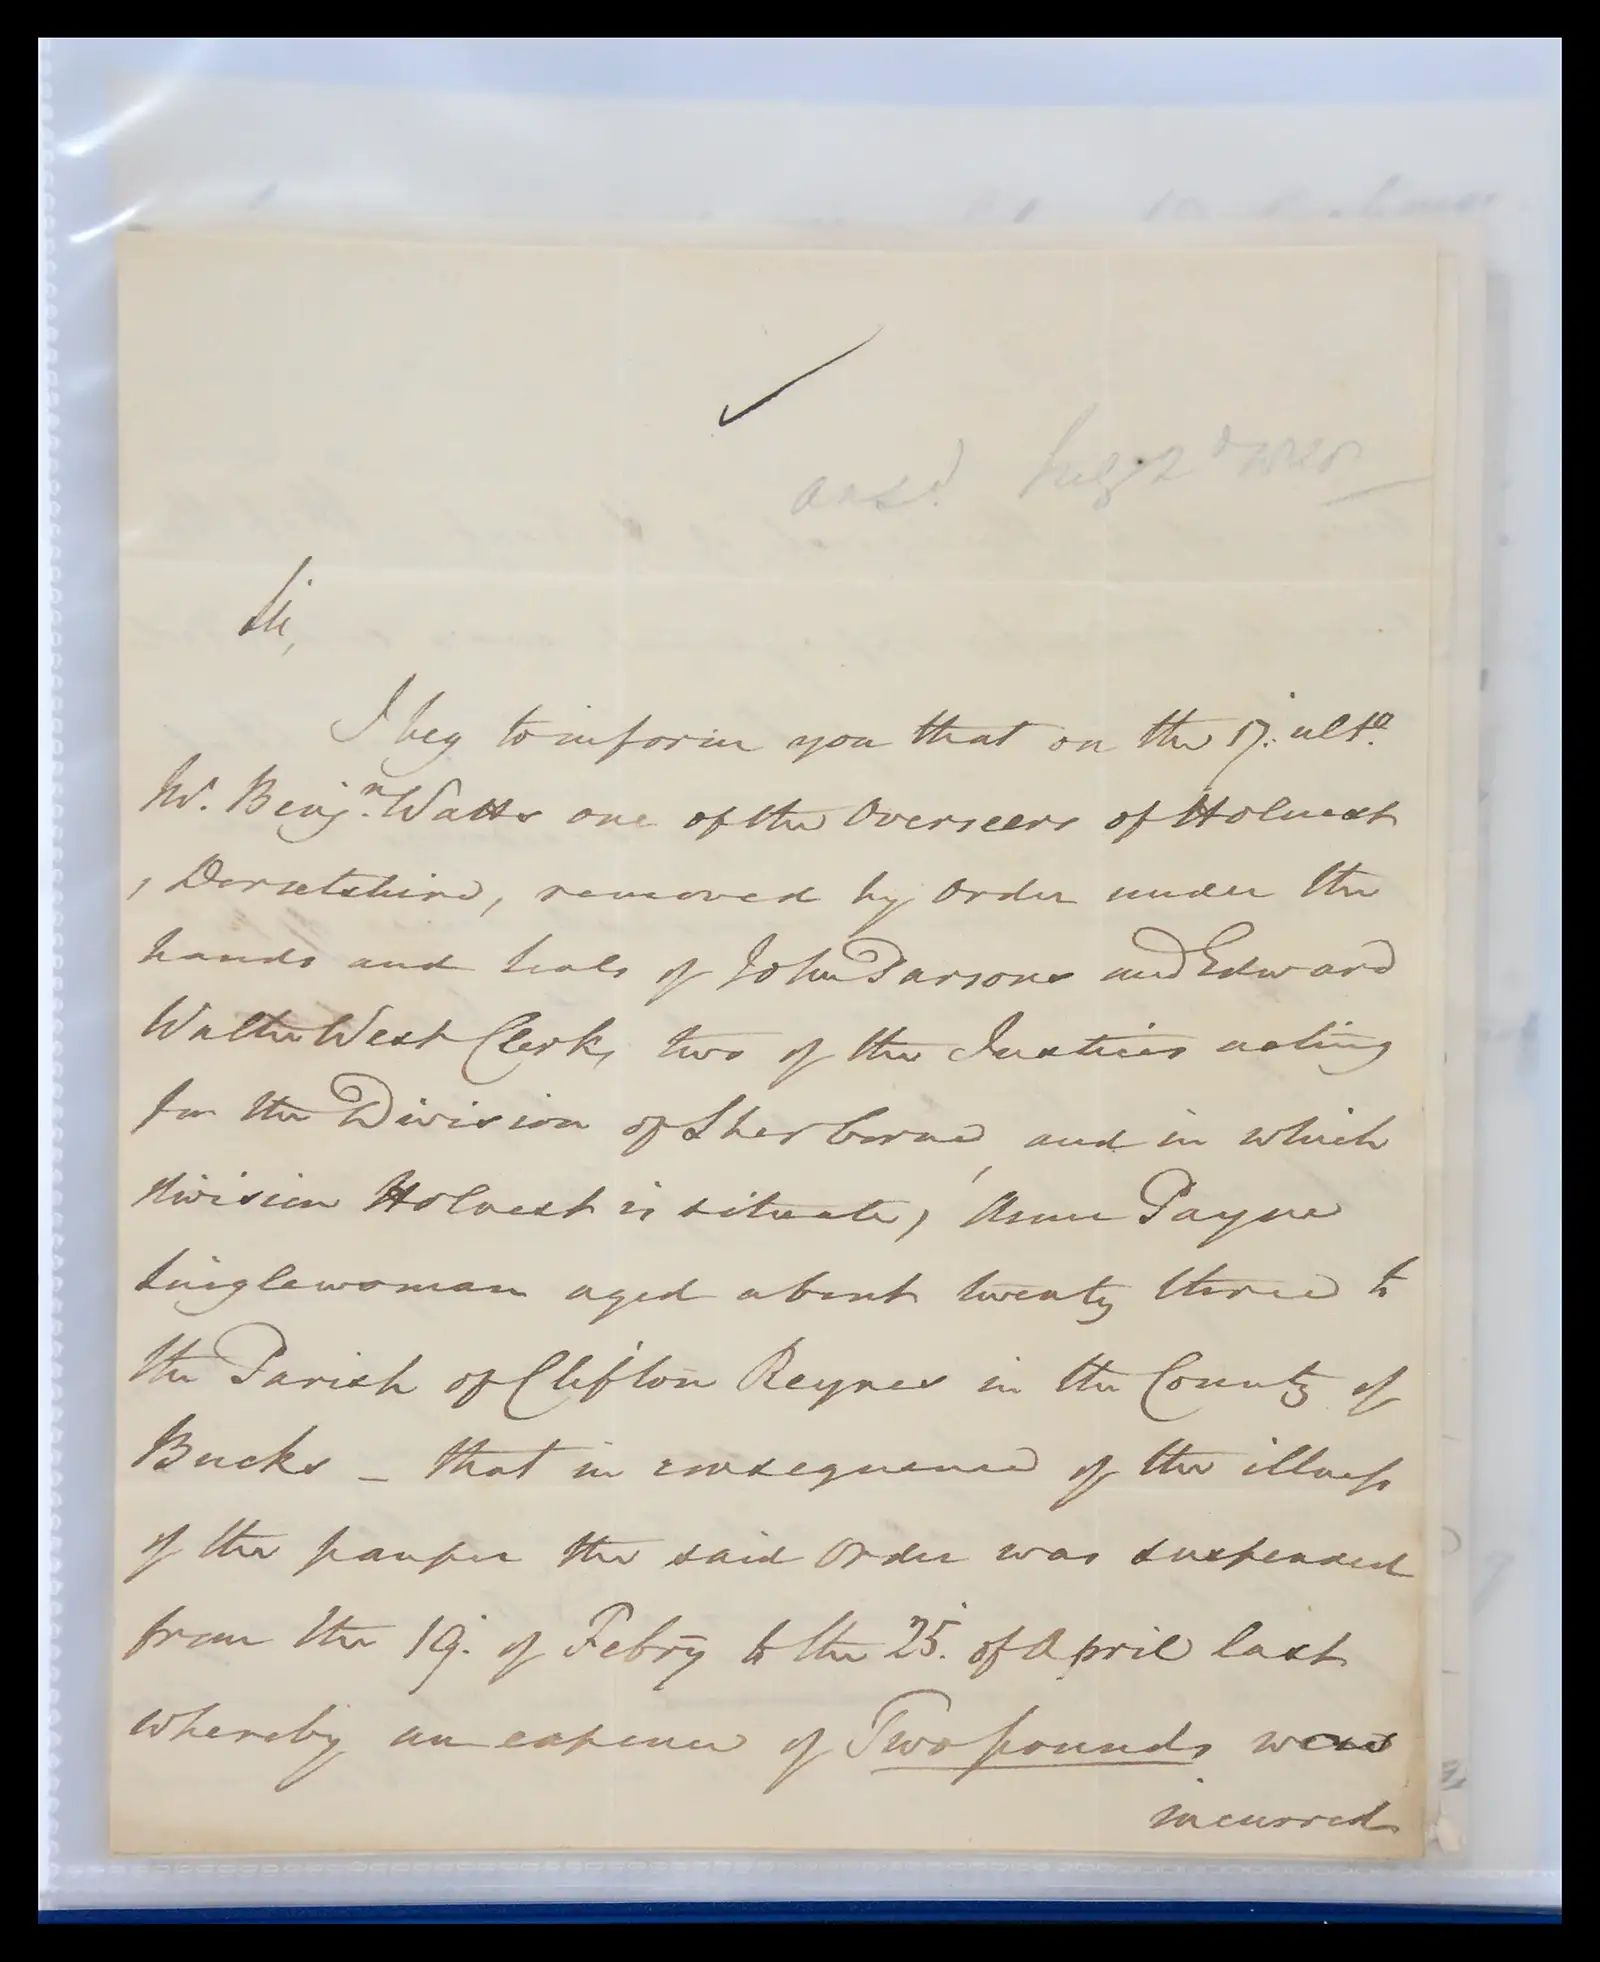 ansd. July 2d
Sir,
I beg to inform you that on the 17. ulto.
Mr. Benjn. Watts one of the Overseers of Holnest
, Dorsetshire, removed by order under the
hands and seals of John Parsons and Edward
Walter West Clerk, two of the Justices acting
for the Division of Sherborne, and in which
division Holnest is situate, Anne Payne
singlewoman aged about twenty three to
the Parish of Clifton Reynes in the County of
Bucks – that in consequence of the illness
of the pauper the said Order was suspended
from the 19. of Febry to the 25. of April last
whereby an expence of Two pounds was
incurred